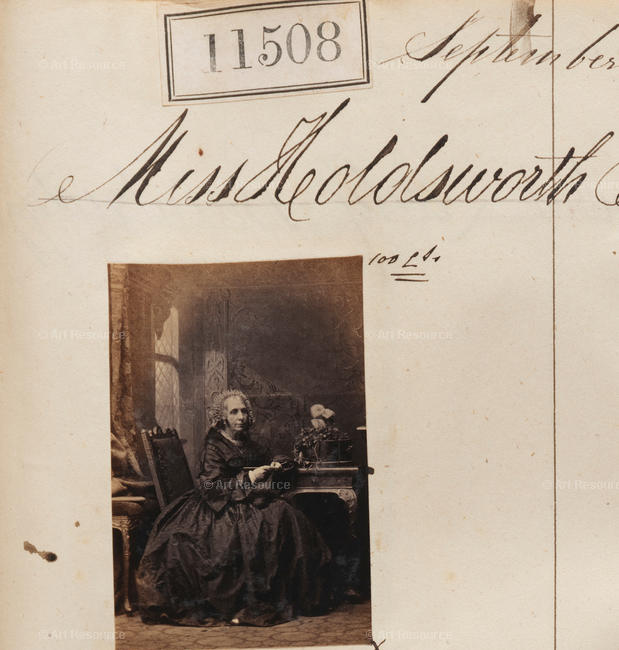 11508
September
Miss Holdsworth
100
© Art Resource
© Art Resource
© Art Resource
© Art Resource
© Art Resource
© Art Resource
© Art Resource
© Art Resource
© Art Resource